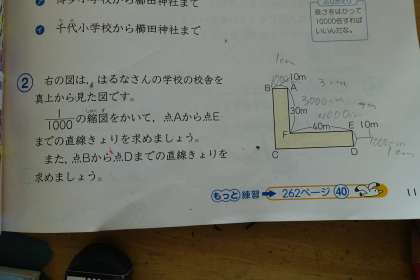 小学校から櫛田神社まで
イ 千代小学校から櫛田神社まで
長さをはかって
10000倍すれば
いいんだな。
2 右の図は、はるなさんの学校の校舎を
真上から見た図です。
1/1000の縮図をかいて、点Aから点E
までの直線きょりを求めましょう。
また、点Bから点Dまでの直線きょりを
求めましょう。
1cm
10m
B A
3cm
3000cm
30m
40m E 10m
F
1000cm
1cm
C D
もっと練習 → 262ページ 40
11